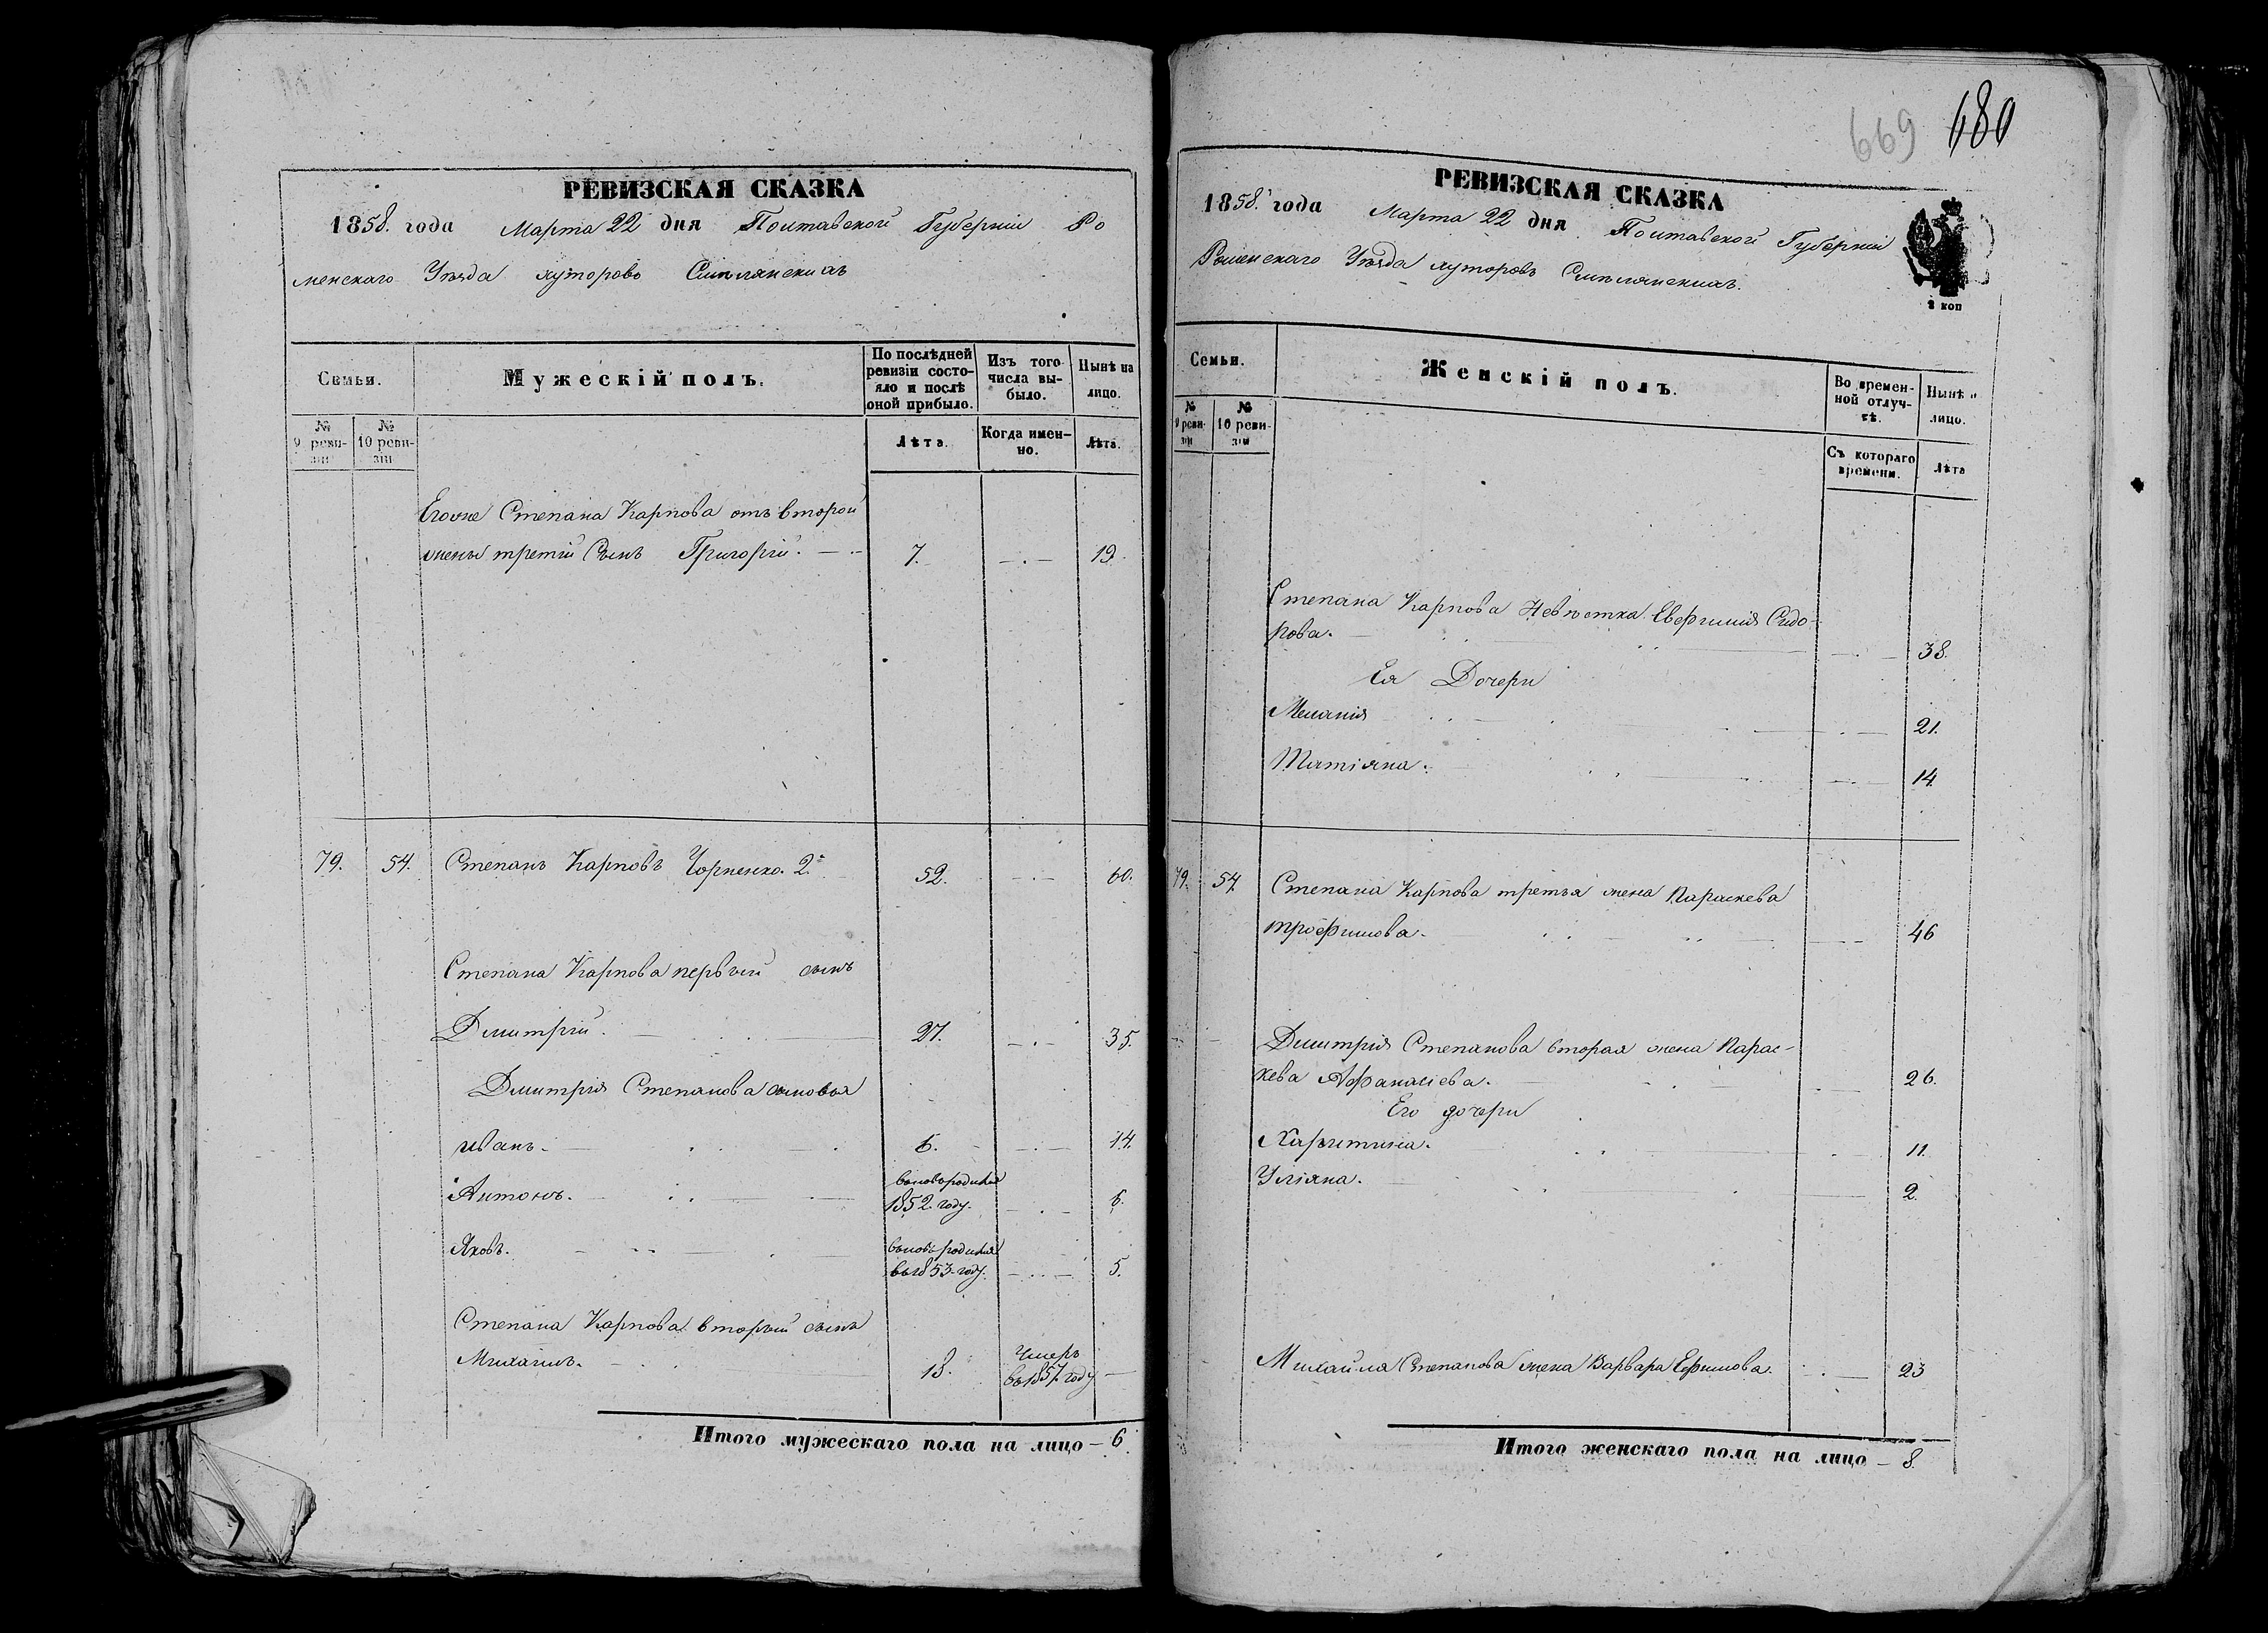 РЕВИЗСКАЯ СКАЗКА
1858. года Марта 22 дня Полтавской Губерніи Ро
менскаго Уѣзда хуторовъ Смѣлянскихъ
Семьи.
Мужескій полъ.
По послѣдней ревизіи состояло и послѣ оной прибыло.
Изъ того числа выбыло.
Нынѣ на лицо.
№ 9 ревизіи
№ 10 ревизіи
Лѣта.
Когда именно.
Лѣта.
Егоже Степана Карпова отъ второй
жены третій Сынъ Григорій. 7. 19.
79. 54. Степанъ Карповъ Чорненко. 2й 52. 60.
Степана Карпова первый сынъ
Дмитрій. 27. 35.
Дмитрія Степанова сыновья
Иванъ. 6. 14.
Антонъ. вновьродился 1852 году. 6.
Яковъ. вновьродился въ1853 году. 5.
Степана Карпова второй сынъ
Михаилъ. 18. Умеръ въ1857 году
Итого мужескаго пола на лицо – 6.
669 680
РЕВИЗСКАЯ СКАЗКА
1858. года Марта 22 дня Полтавской Губерніи
Роменскаго Уѣзда хуторовъ Смѣлянскихъ.
2 коп
Семьи.
Женскій полъ.
Во временной отлучкѣ.
Нынѣ н лицо.
№ 9 ревизіи
№ 10 ревизіи
Съ котораго времени.
Лѣта
Степана Карпова Невѣстка Евфимія Сидо-
рова. 38.
Ея Дочери
Меланія 21.
Татіяна. 14.
79. 54. Степана Карпова третья жена Параскева
трофимова. 46
Димитрія Степанова вторая жена Парас-
кева Афанасіева. 26.
Его дочери
Харитина. 11.
Уліяна. 2.
Михайла Степанова жена Варвара Ефимова. 23
Итого женскаго пола на лицо – 8.